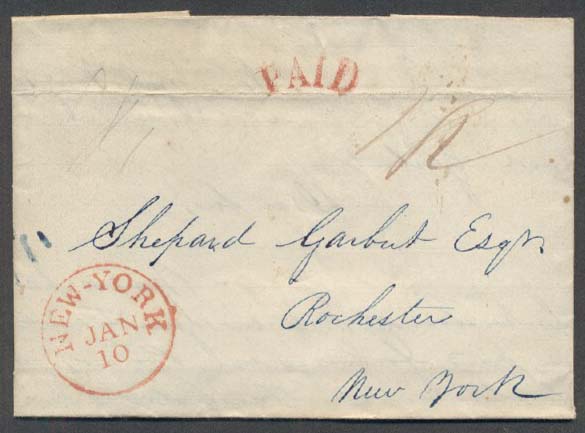 PAID
Shepard Garbut Esqr
Rochester
New York
NEW-YORK
JAN
10